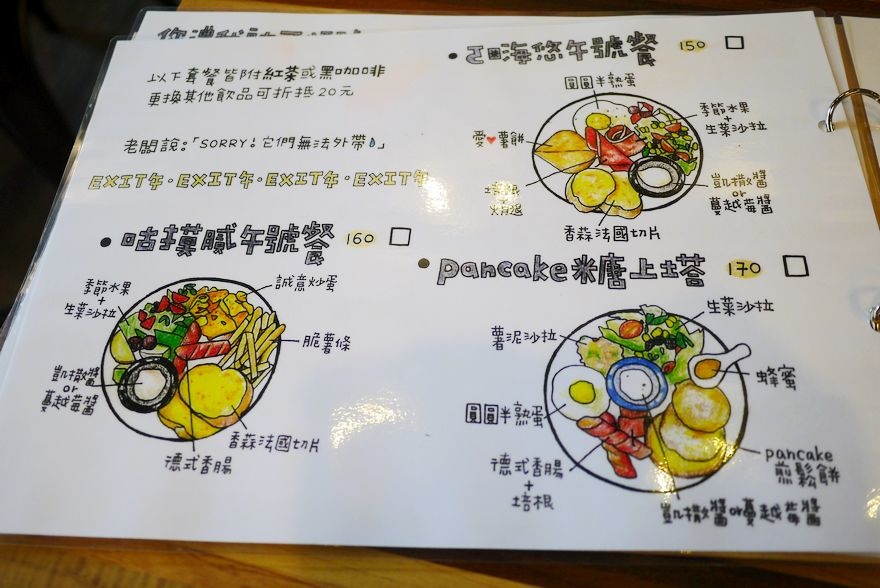 以下套餐皆附紅茶或黑咖啡
更換其他飲品可折抵20元
老闆說:「SORRY!它們無法外帶」
EXIT年·EXIT年·EXIT年·EXIT年
• 咕摸膩午號餐 160
季節水果
+
生菜沙拉
凱撒醬
or
蔓越莓醬
德式香腸
香蒜法國切片
脆薯條
誠意炒蛋
海悠午號餐 150
圓圓半熟蛋
愛♥薯餅
培根
香蒜法國切片
季節水果
+
生菜沙拉
凱撒醬
or
蔓越莓醬
• pancake米唐上塔 170
薯泥沙拉
圓圓半熟蛋
德式香腸
+
培根
生菜沙拉
蜂蜜
pancake
煎鬆餅
凱撒醬or蔓越莓醬